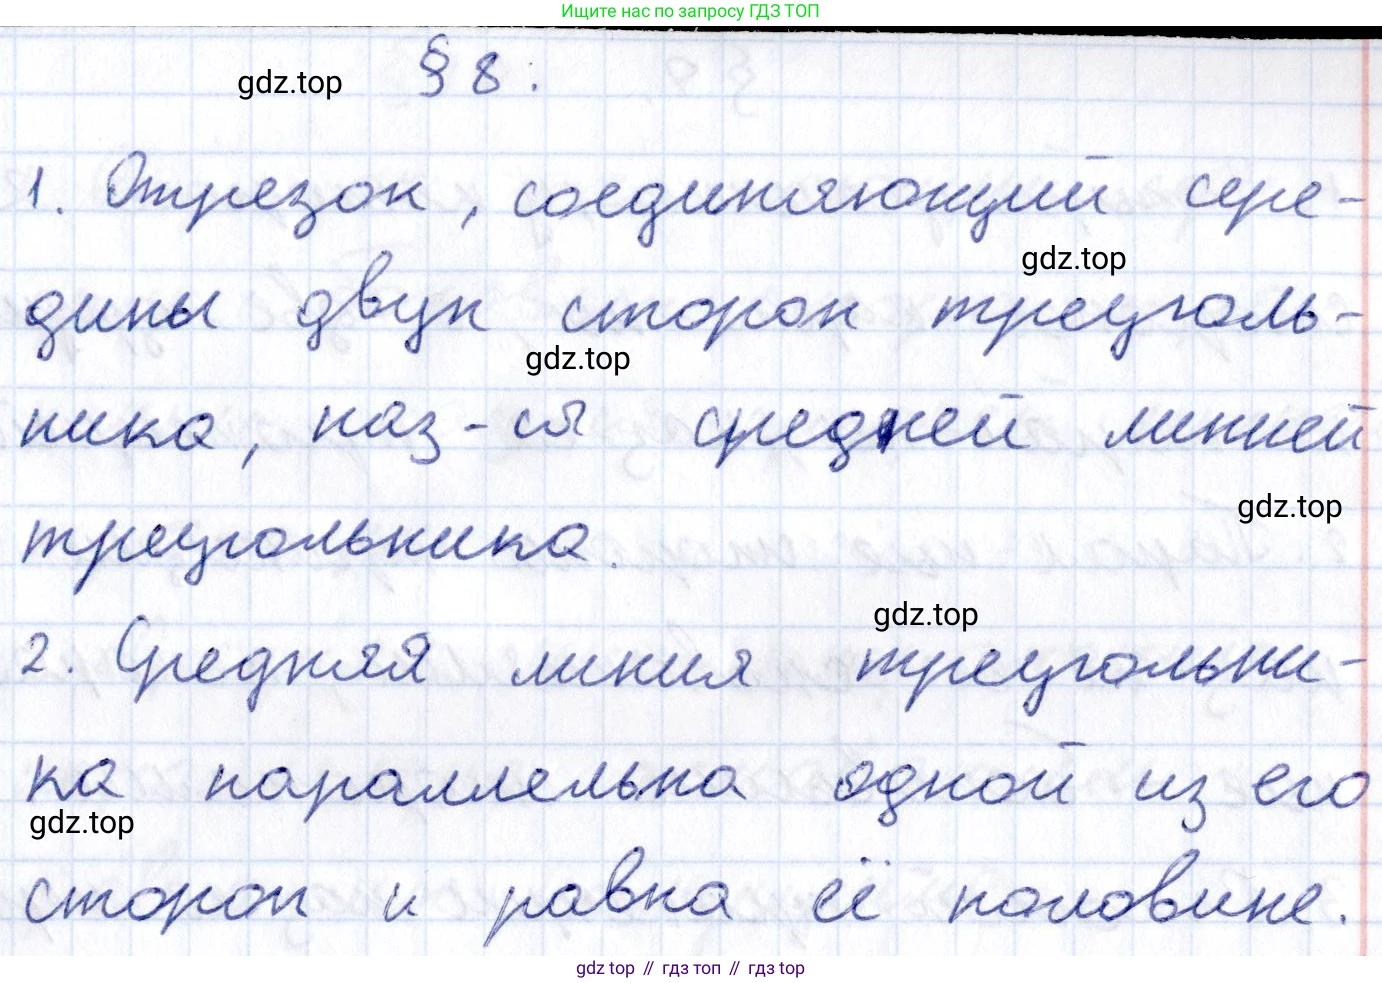 Ищите нас по запросу ГДЗ ТОП
gdz.top § 8.
1. Отрезок, соединяющий сере-
gdz.top
дины двух сторон треуголь-
gdz.top
ника, наз-ся средней линией
gdz.top
треугольника.
gdz.top
2. Средняя линия треугольни-
ка параллельна одной из его
gdz.top
сторон и равна её половине.
gdz top // гдз топ // гдз top